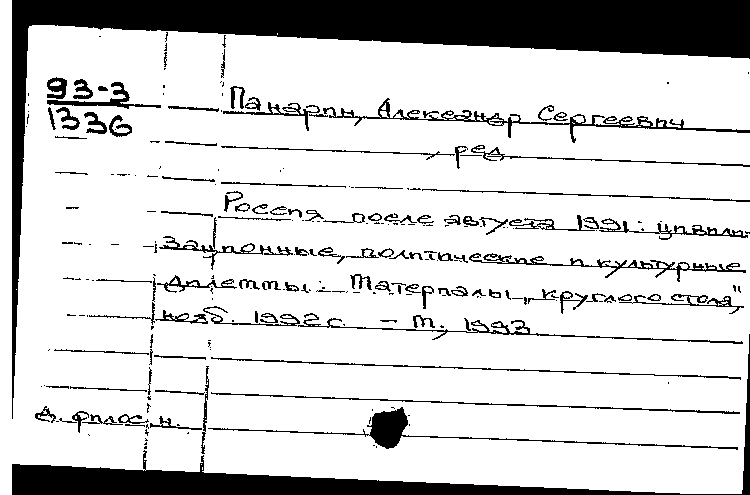 93-3
1336
Панарин, Александр Сергеевич
, ред.
Россия после августа 1991: цивили-
зационные, политические и культурные
дилеммы: Материалы „круглого стола",
нояб. 1992 г. – М., 1993
д. филос. н.